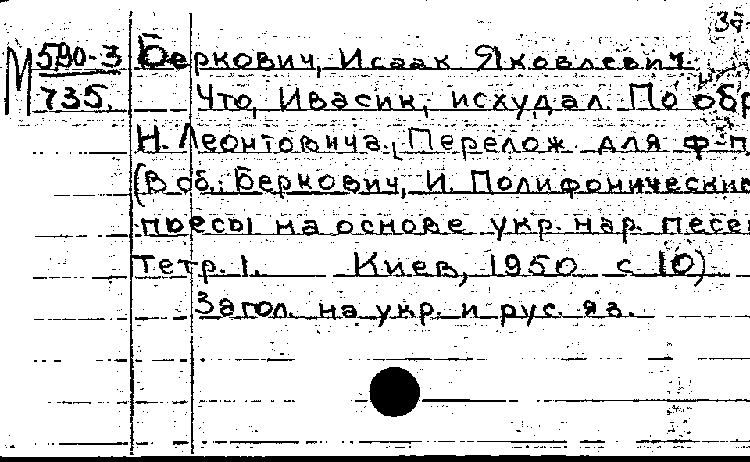 М 590-3 Беркович, Исаак Яковлевич.
735. Что, Ивасик, исхудал. По обр
Н. Леонтовича. Перелож. для ф-п
(В сб.: Беркович, И. Полифонические
пьесы на основе укр. нар. песен
Тетр. 1. Киев, 1950 с 10)
Загол. на укр. и рус. яз.